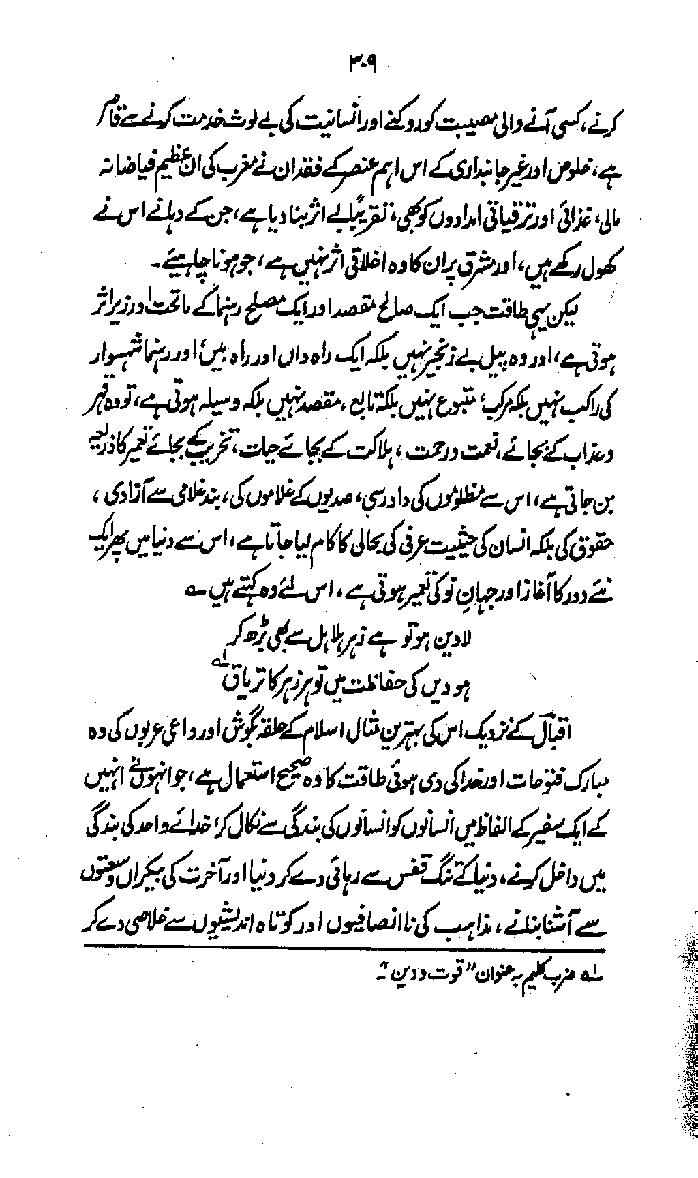 ۳۰۹
کرنے، کسی آنے والی مصیبت کو روکنے اور انسانیت کی بے لوث خدمت کرنے سے قائم
ہے، خلوص اور غیر جانبداری کے اس اہم عنصر کے فقدان نے مغرب کی ان عظیم فیاضانہ
مالی، غذائی اور ترقیاتی امدادوں کو بھی، تقریباً بے اثر بنا دیا ہے، جن کے دہانے اس نے
کھول رکھے ہیں، اور مشرق پر ان کا وہ اخلاقی اثر نہیں ہے، جو ہونا چاہیئے۔
لیکن یہی طاقت جب ایک صالح مقصد اور ایک مصلح رہنما کے ماتحت اور زیر اثر
ہوتی ہے، اور وہ پیل بے زنجیر نہیں بلکہ ایک راہ داں اور راہ بیں، اور رہنما شہسوار
کی راکب نہیں بلکہ مرکب، متبوع نہیں بلکہ تابع، مقصد نہیں بلکہ وسیلہ ہوتی ہے، تو وہ قہر
و عذاب کے بجائے، نعمت و رحمت، ہلاکت کے بجائے حیات، تخریب کے بجائے تعمیر کا ذریعہ
بن جاتی ہے، اس سے مظلوموں کی دادرسی، صدیوں کے غلاموں کی، بند غلامی سے آزادی،
حقوق کی بلکہ انسان کی حیثیت عرفی کی بحالی کا کام لیا جاتا ہے، اس سے دنیا میں پھر ایک
نئے دور کا آغاز اور جہانِ نو کی تعمیر ہوتی ہے، اس لئے وہ کہتے ہیں ؎
لا دیں ہو تو ہے زہر ہلاہل سے بھی بڑھ کر
ہو دیں کی حفاظت میں تو ہر زہر کا تریاق لہ
اقبالؔ کے نزدیک اس کی بہترین مثال اسلام کے حلقہ بگوش اور داعی عربوں کی وہ
مبارک فتوحات اور خدا کی دی ہوئی طاقت کا وہ صحیح استعمال ہے، جو انہوں نے انہیں
کے ایک سفیر کے الفاظ میں انسانوں کو انسانوں کی بندگی سے نکال کر، خدائے واحد کی بندگی
میں داخل کرنے، دنیا کے تنگ قفس سے رہائی دے کر دنیا اور آخرت کی بیکراں وسعتوں
سے آشنا بنانے، مذاہب کی ناانصافیوں اور کوتاہ اندیشیوں سے خلاصی دے کر
لہ ضرب کلیم بہ عنوان "قوت و دین"۔